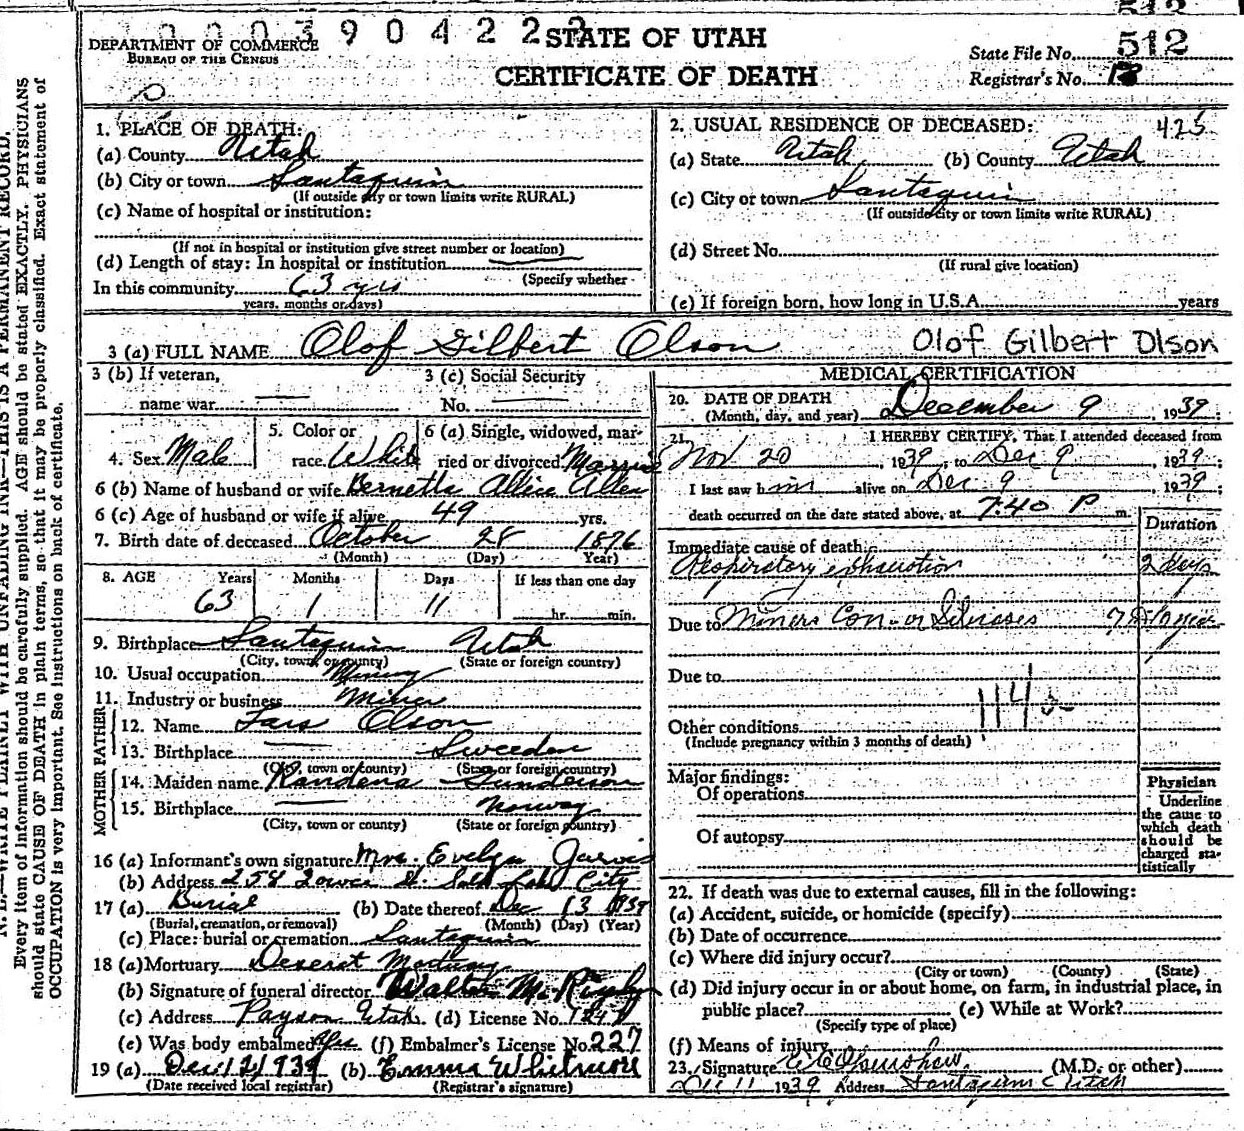 0003904222
513
DEPARTMENT OF COMMERCE
BUREAU OF THE CENSUS
STATE OF UTAH
CERTIFICATE OF DEATH
State File No. 512
Registrar's No.
N. B.—WRITE PLAINLY WITH UNFADING INK—THIS IS A PERMANENT RECORD.
Every item of information should be carefully supplied. AGE should be stated EXACTLY. PHYSICIANS
should state CAUSE OF DEATH in plain terms, so that it may be properly classified. Exact statement of
OCCUPATION is very important. See instructions on back of certificate.
1. PLACE OF DEATH:
(a) County Utah
(b) City or town Santaquin
(If outside city or town limits write RURAL)
(c) Name of hospital or institution:
(If not in hospital or institution give street number or location)
(d) Length of stay: In hospital or institution
(Specify whether
In this community 63 yrs
years, months or days)
2. USUAL RESIDENCE OF DECEASED: 425
(a) State Utah (b) County Utah
(c) City or town Santaquin
(If outside city or town limits write RURAL)
(d) Street No.
(If rural give location)
(e) If foreign born, how long in U.S.A. years
3 (a) FULL NAME Olof Gilbert Olson Olof Gilbert Olson
3 (b) If veteran,
name war
3 (c) Social Security
No.
4. Sex Male
5. Color or
race White
6 (a) Single, widowed, mar-
ried or divorced Married
6 (b) Name of husband or wife Vernetta Allice Allen
6 (c) Age of husband or wife if alive 49 yrs.
7. Birth date of deceased October 28 1876
(Month) (Day) Year)
8. AGE Years Months Days If less than one day
63 1 11 hr. min.
9. Birthplace Santaquin Utah
(City, town or county) (State or foreign country)
10. Usual occupation Mining
11. Industry or business Miner
FATHER
12. Name Lars Olson
13. Birthplace Sweeden
(City, town or county) (State or foreign country)
MOTHER
14. Maiden name Gunderson
15. Birthplace Norway
(City, town or county) (State or foreign country)
16 (a) Informant's own signature Mrs. Evelyn Jarvis
(b) Address 258 St. Salt Lake City
17 (a) Burial (b) Date thereof Dec 13 1939
(Burial, cremation, or removal) (Month) (Day) (Year)
(c) Place: burial or cremation Santaquin
18 (a) Mortuary Deseret Mortuary
(b) Signature of funeral director Walter M. Rigby
(c) Address Payson Utah. (d) License No.
(e) Was body embalmed? Yes (f) Embalmer's License No. 227
19 (a) Dec 12 1939 (b) Emma Whitmore
(Date received local registrar) (Registrar's signature)
MEDICAL CERTIFICATION
20. DATE OF DEATH
(Month, day, and year) December 9, 1939
21. I HEREBY CERTIFY, That I attended deceased from
Nov 20, 1939, to Dec 9, 1939;
I last saw him alive on Dec 9, 1939;
death occurred on the date stated above, at 7:40 P m.
Duration
Immediate cause of death
Respiratory exhaustion 2 days
Due to Miners Con- or Silicoses 7 to 10 year
Due to
114
Other conditions
(Include pregnancy within 3 months of death)
Major findings:
Of operations
Of autopsy
Physician
Underline
the cause to
which death
should be
charged sta-
tistically
22. If death was due to external causes, fill in the following:
(a) Accident, suicide, or homicide (specify)
(b) Date of occurrence
(c) Where did injury occur?
(City or town) (County) (State)
(d) Did injury occur in or about home, on farm, in industrial place, in
public place? (e) While at Work?
(Specify type of place)
(f) Means of injury
23. Signature (M.D. or other)
Dec 11 1939 Address Santaquin Utah